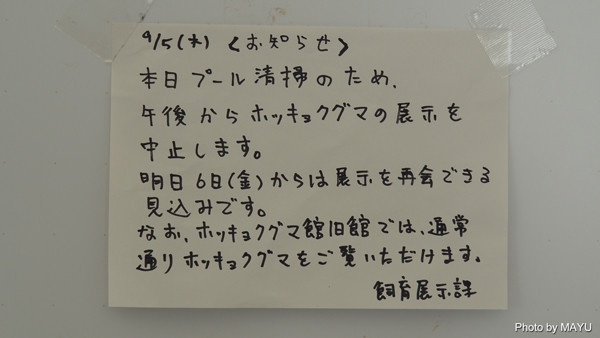 9/5(木) <お知らせ>
本日プール清掃のため、
午後からホッキョクグマの展示を
中止します。
明日6日(金)からは展示を再会できる
見込みです。
なお、ホッキョクグマ館旧館では、通常
通りホッキョクグマをご覧いただけます。
飼育展示課
Photo by MAYU